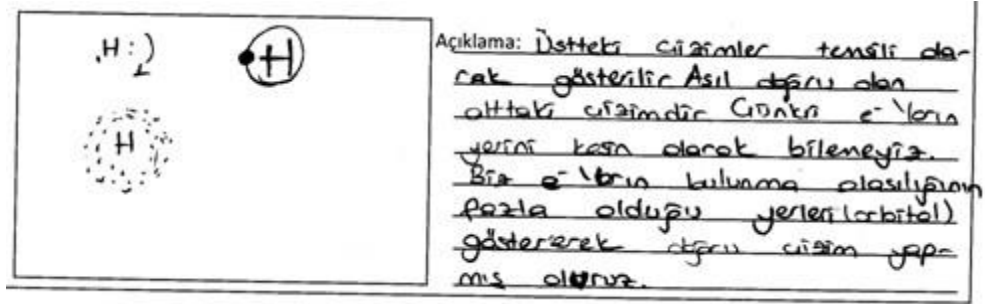 .H:)
H
H
Açıklama: Üstteki çizimler temsili ola-
rak gösterilir Asıl doğru olan
alttaki çizimdir Çünkü e⁻'ların
yerini kesin olarak bilemeyiz.
Biz e⁻'ların bulunma olasılığının
fazla olduğu yerleri (orbital)
göstererek doğru çizim yap-
mış oluruz.